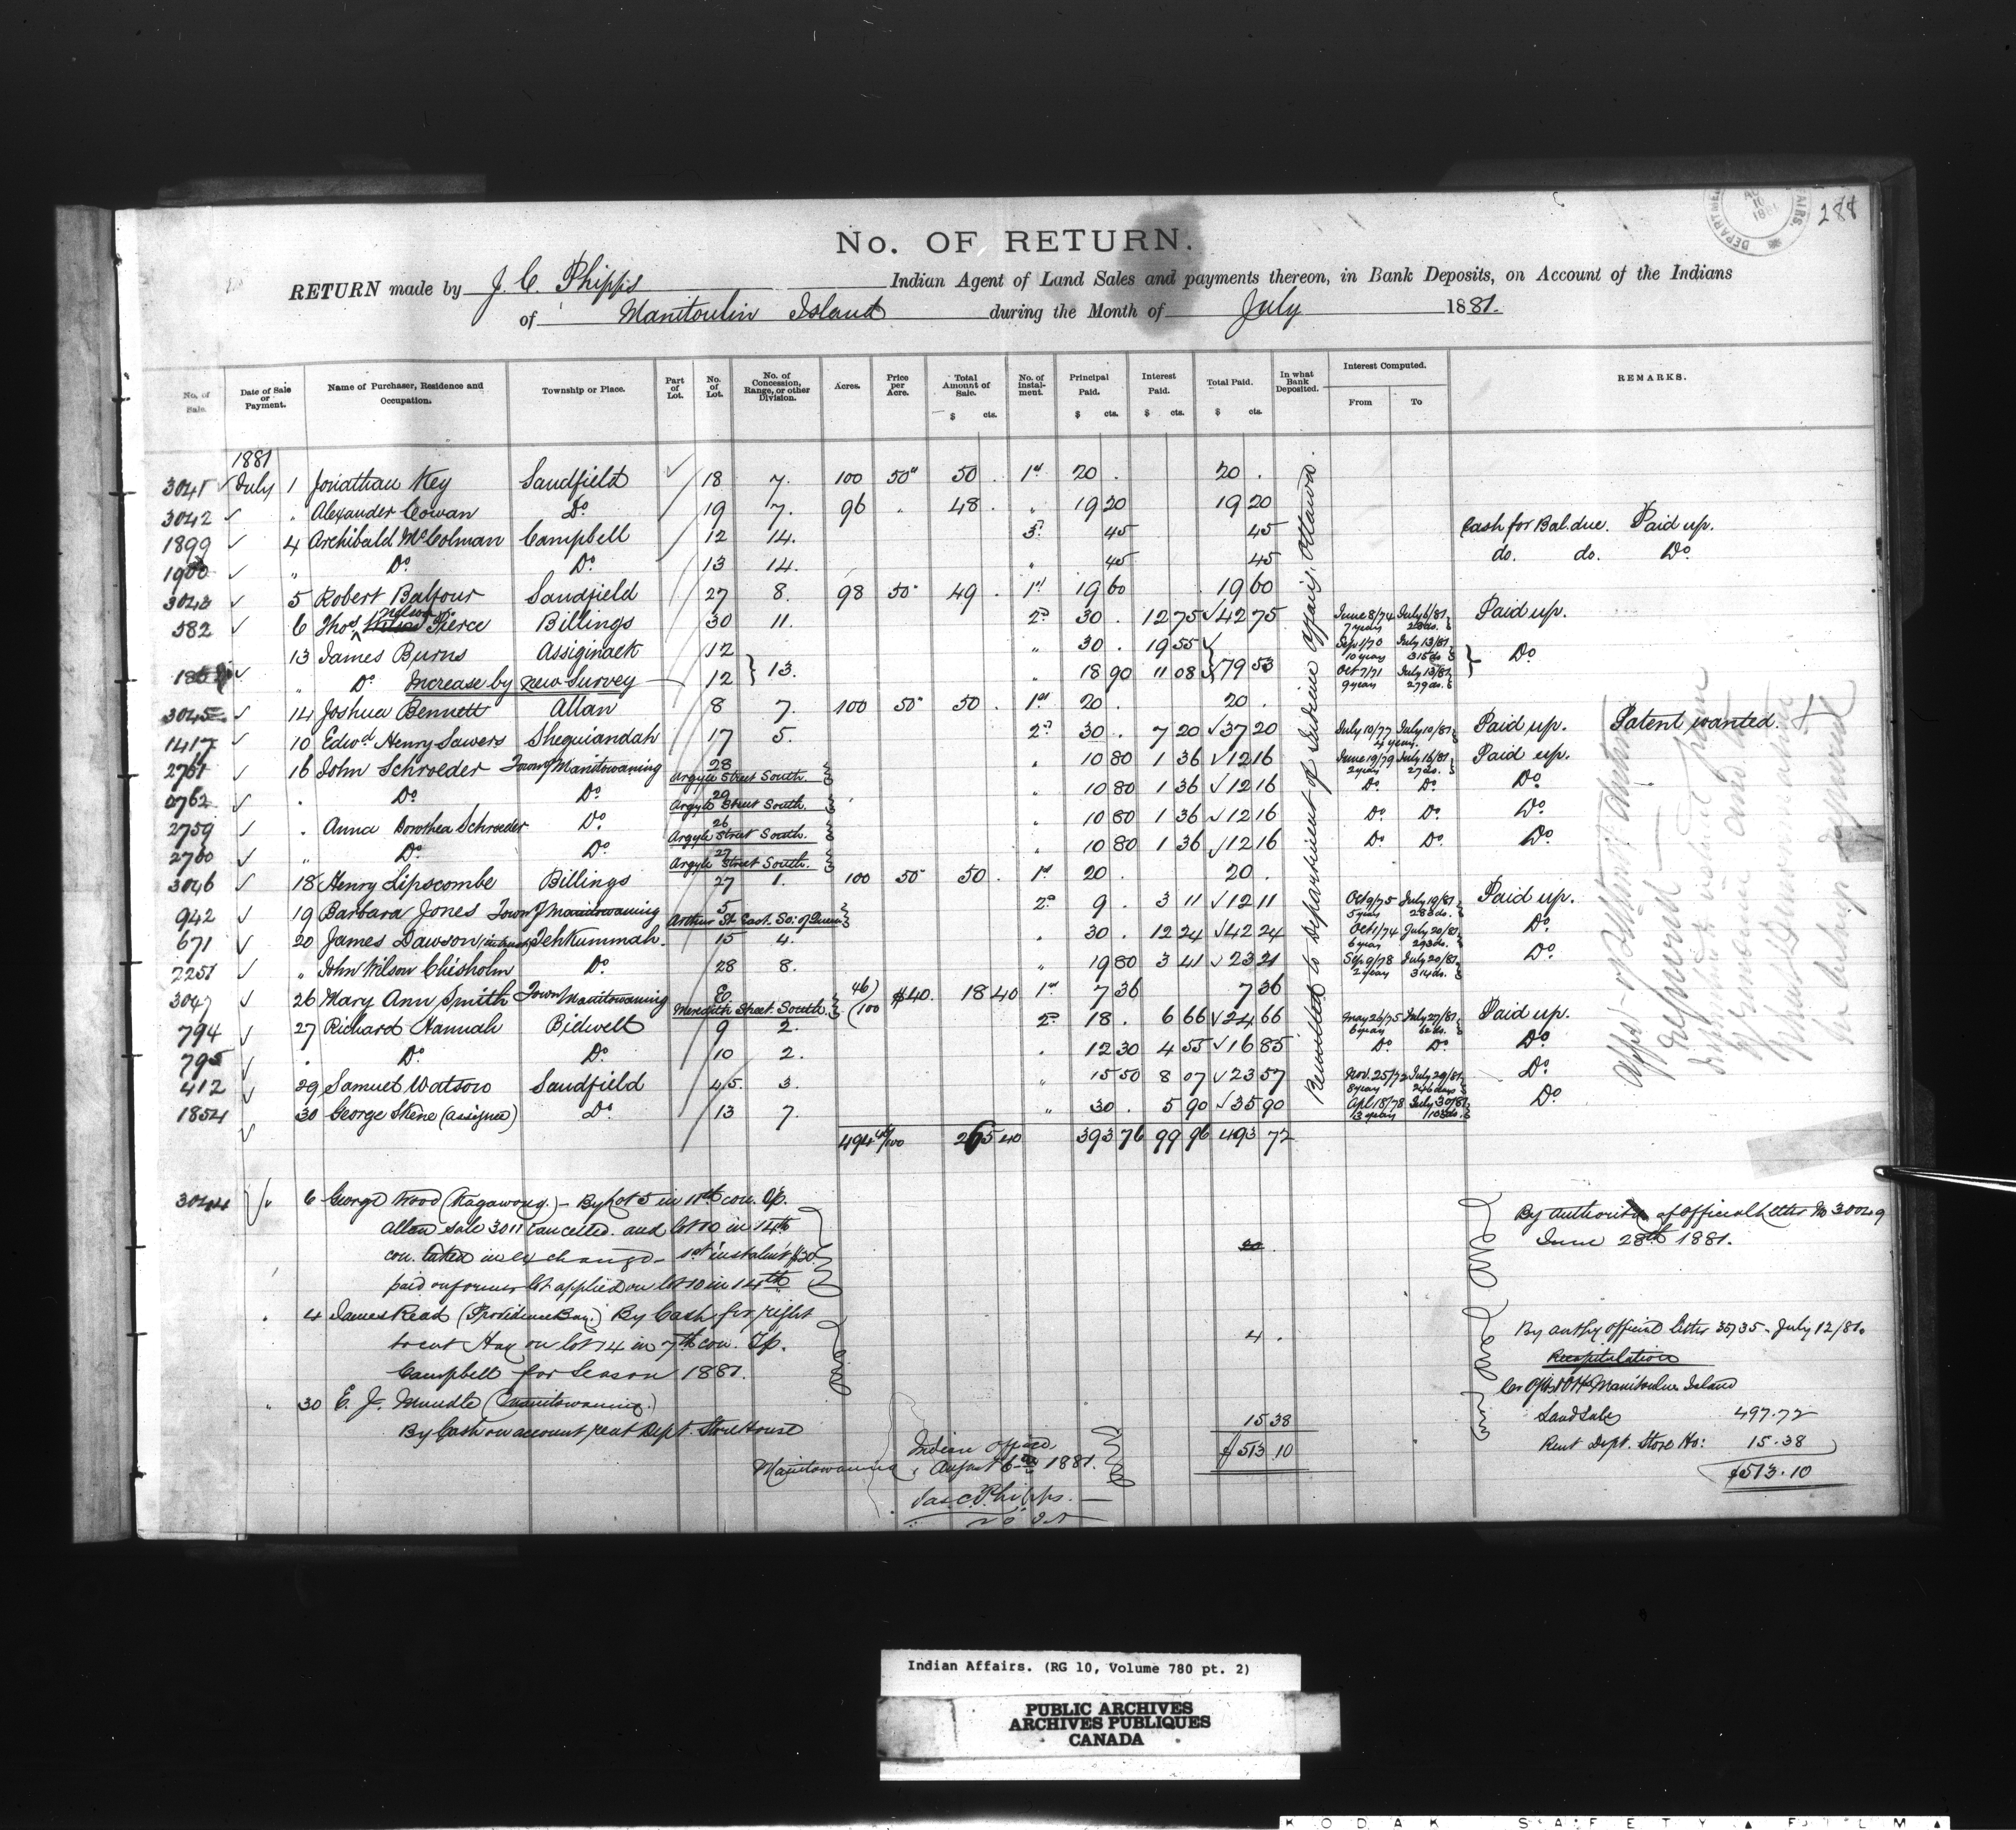 288
DEPARTME AIRS. AU 10 1881
No. OF RETURN.
RETURN made by J. C. Phipps Indian Agent of Land Sales and payments thereon, in Bank Deposits, on Account of the Indians
of Manitoulin Island during the Month of July 1881.
No. of Sale. Date of Sale or Payment. Name of Purchaser, Residence and Occupation. Township or Place. Part of Lot. No. of Lot. No. of Concession, Range, or other Division. Acres. Price per Acre. Total Amount of Sale. $ cts. No. of instalment. Principal Paid. $ cts. Interest Paid. $ cts. Total Paid. $ cts. In what Bank Deposited. Interest Computed. From To REMARKS.
1881
3041 July 1 Jonathan Key Sandfield 18 7. 100 50" 50 . 1st 20 . 20 .
3042 " Alexander Cowan Do 19 7. 96 " 48 . " 19 20 19 20
1899 4 Archibald McColman Campbell 12 14. 3d 45 45 Cash for Bal. due. Paid up.
1900 " Do Do 13 14. " 45 45 do. do. Do
3043 5 Robert Balfour Sandfield 27 8. 98 50" 49 . 1st 19 60 19 60
582 6 Thos Nelson Pierce Billings 30 11. 2d 30 . 12 75 42 75 June 8/74 July 6/81 7 years 28 ds. Paid up.
13 James Burns Assiginack 12 " 30 . 19 55 Sep 1/70 July 13/81 10 years 315 ds Do
" Do Increase by new Survey 12 } 13. " 18 90 11 08 79 53 Oct 7/71 July 13/81 9 years 279 ds.
3045 14 Joshua Bennett Allan 8 7. 100 50" 50 . 1st 20 . 20 .
1417 10 Edwd Henry Sawers Sheguiandah 17 5. 2d 30 . 7 20 37 20 July 10/77 July 10/81 4 years. Paid up. Patent wanted.
2761 16 John Schroeder Town of Manitowaning 28 Argyle Street South. " 10 80 1 36 12 16 June 19/79 July 16/81 2 years 27 ds. Paid up.
2762 " Do Do 29 Argyle Street South. 10 80 1 36 12 16 Do Do Do
2759 " Anna Dorothea Schroeder Do 26 Argyle Street South. " 10 80 1 36 12 16 Do Do Do
2760 " Do Do 27 Argyle Street South. " 10 80 1 36 12 16 Do Do Do
3046 18 Henry Lipscombe Billings 27 1. 100 50" 50 . 1st 20 . 20 .
942 19 Barbara Jones Town of Manitowaning 5 Arthur St. East. So: of Queen 2d 9 . 3 11 12 11 Oct 9/75 July 19/81 5 years 283 ds. Paid up.
671 20 James Dawson Tehkummah. 15 4. " 30 . 12 24 42 24 Oct 1/74 July 20/81 6 years 293 ds. Do
2251 " John Wilson Chisholm Do 28 8. " 19 80 3 41 23 21 Sep 9/78 July 20/81 2 years 314 ds. Do
3047 26 Mary Ann Smith Town Manitowaning E Meredith Street South. 46/100 $40. 18 40 1st 7 36 7 36
794 27 Richard Hannah Bidwell 9 2. 2d 18 . 6 66 24 66 May 26/75 July 27/81 6 years 62 ds. Paid up.
795 " Do Do 10 2. " 12 30 4 55 16 85 Do Do Do
412 29 Samuel Watson Sandfield 45. 3. " 15 50 8 07 23 57 Nov. 25/72 July 29/81 8 years 246 days Do
1854 30 George Skene (assignee) Do 13 7. " 30 . 5 90 35 90 Apl 18/78 July 30/81 3 years 103 ds. Do
Remitted to Department of Indian Affairs, Ottawa.
494 46/100 265 40 393 76 99 96 493 72
3044 6 George Wood (Kagawong.) - By Lot 5 in 11th con. Tp.
Allan sale 3011 cancelled. and lot 10 in 14th
con. taken in exchange - 1st instalmt $20
paid on former lot applied on lot 10 in 14th
20 .
By authority of Official Letter No 30049
June 28th 1881.
" 4 James Read (Providence Bay.) By Cash for right
to cut Hay on lot 14 in 7th con. Tp.
Campbell for Season 1881.
4 .
By authy Official letter 35735 - July 12/81.
Recapitulation
Manitoulin Island
Land Sales 497.72
Rent Dept. Store Ho: 15.38
$513.10
" 30 E. J. Mundle (Manitowaning.)
By Cash on account rent Dept. Store House 15 38
$513.10
Indian Office
Manitowaning, August 6th 1881.
Jas. C. Phipps.
Indian Affairs. (RG 10, Volume 780 pt. 2)
PUBLIC ARCHIVES
ARCHIVES PUBLIQUES
CANADA
KODAK SAFETY FILM